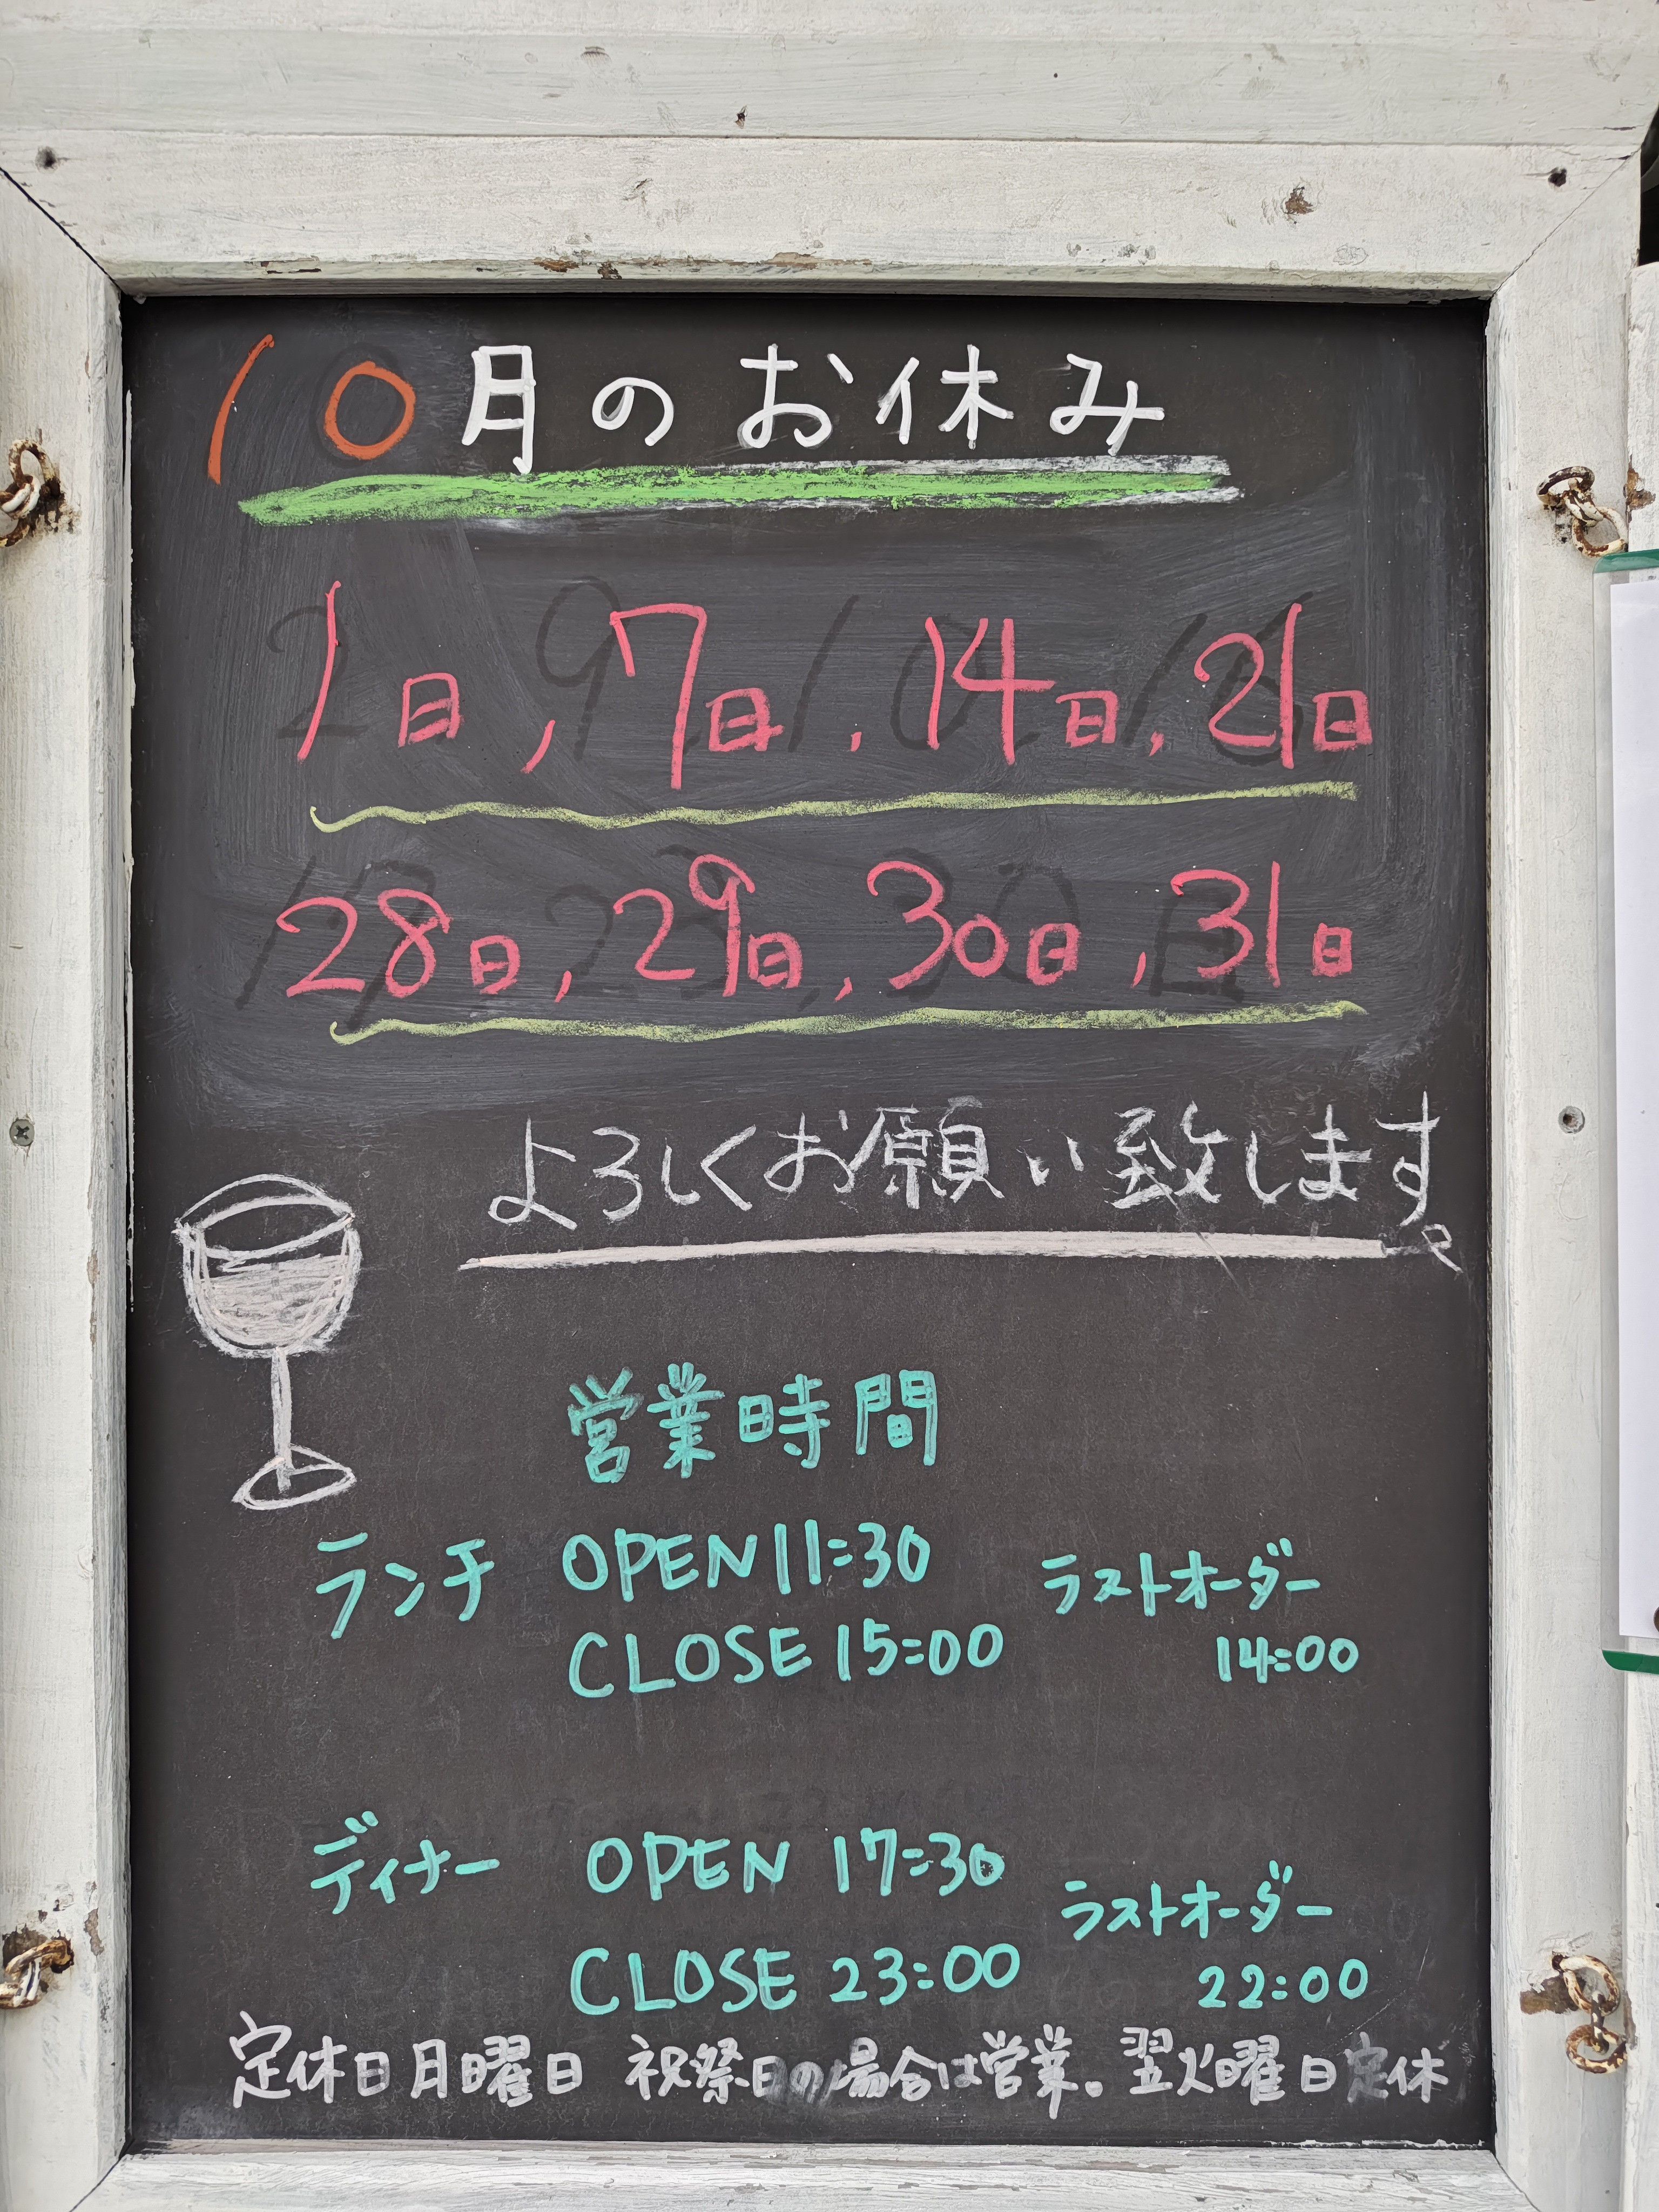 10月のお休み
1日,7日,14日,21日
28日,29日,30日,31日
よろしくお願い致します。
営業時間
ランチ OPEN 11:30 ラストオーダー
CLOSE 15:00 14:00
ディナー OPEN 17:30 ラストオーダー
CLOSE 23:00 22:00
定休日月曜日 祝祭日の場合は営業。翌火曜日定休